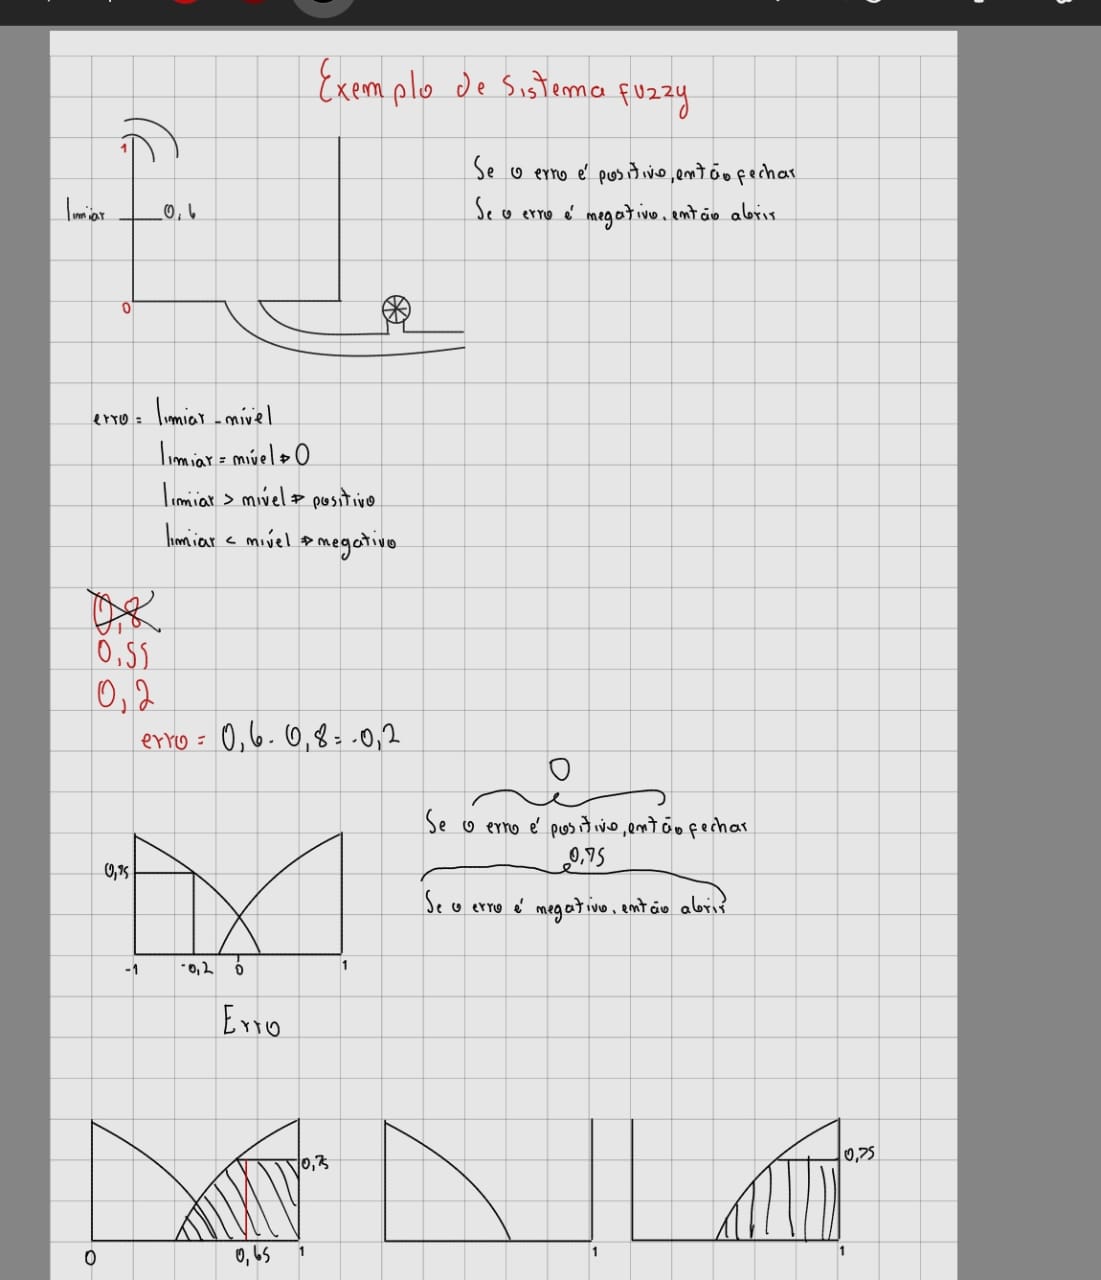 Exemplo de Sistema fuzzy
1
Se o erro é positivo, então fechar
limiar 0,6
Se o erro é negativo, então abrir
0
erro = limiar - nível
limiar = nível → 0
limiar > nível → positivo
limiar < nível → negativo
0,8
0,55
0,2
erro = 0,6 - 0,8 = -0,2
0
Se o erro é positivo, então fechar
0,75
0,75
Se o erro é negativo, então abrir
-1 -0,2 0 1
Erro
0,75
0,75
0 0,65 1
1
1